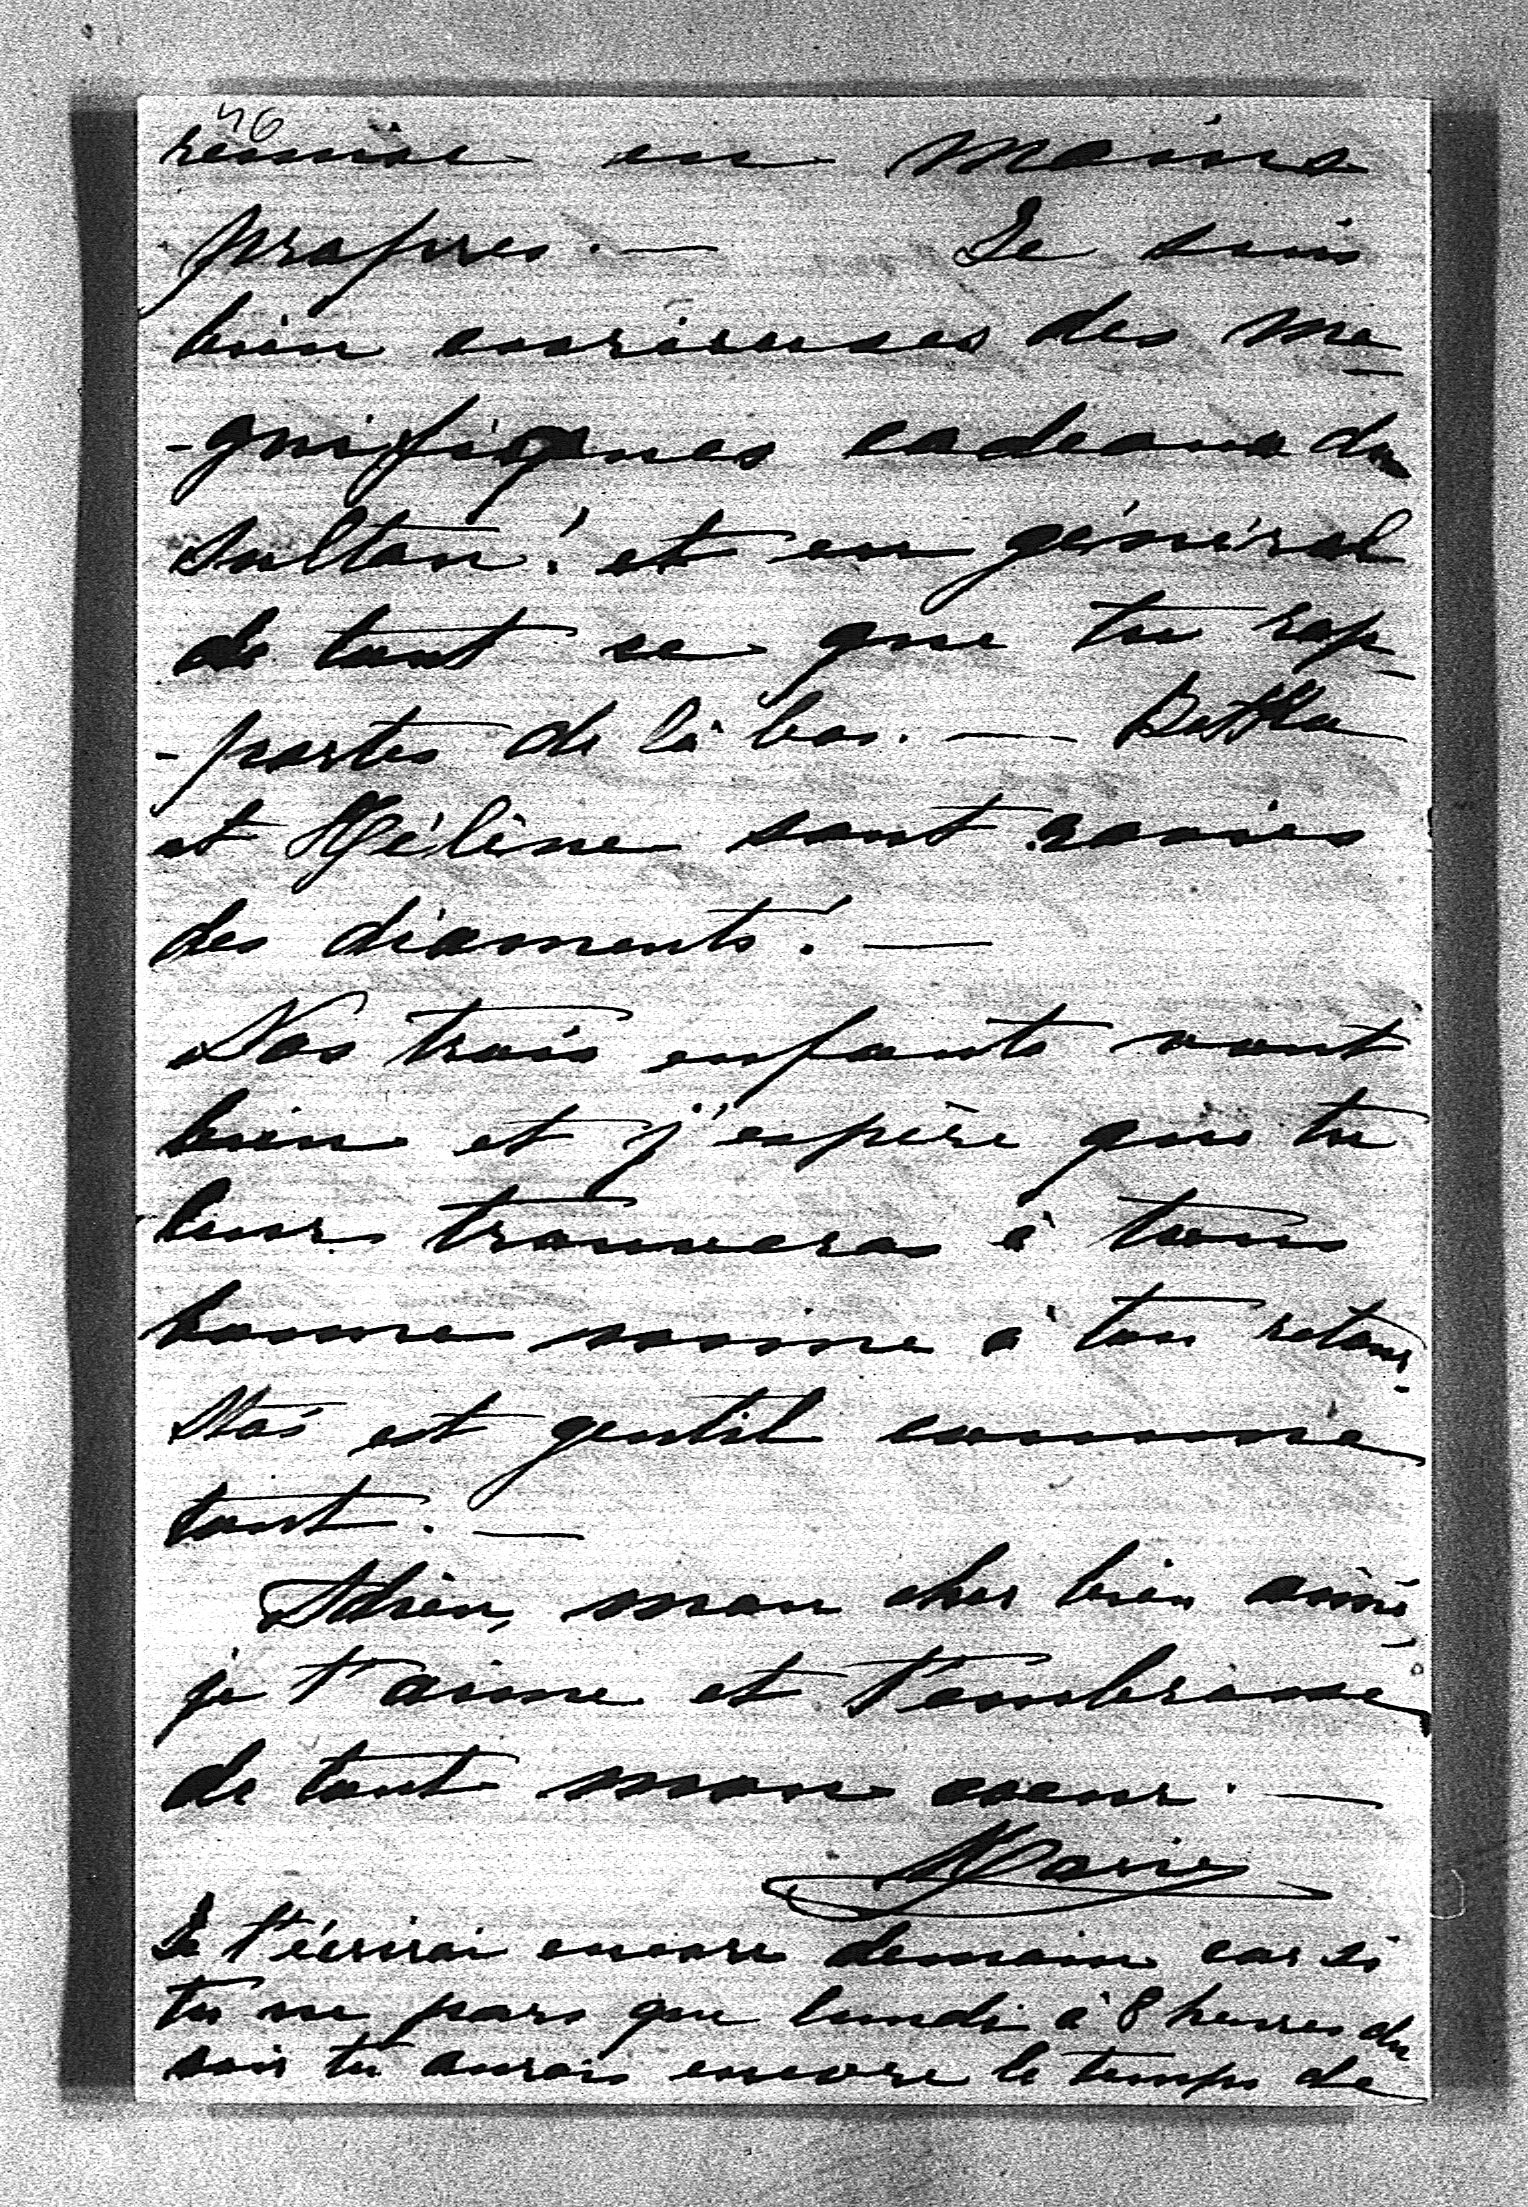 46
remise en mains
propres. — Je suis
bien curieuses des ma
-gnifiques cadeaux du
Sultan! et en général
de tout ce que tu rap
-portes de là bas. — Bethka
et Hélène sont ravies
des diamants! —
Nos trois enfants vont
bien et j'espère que tu
leur trouveras à tous
bonne mine à ton retour.
Stas est gentil comme
tout. —
Adieu, mon cher bien aimé,
je t'aime et t'embrasse
de tout mon coeur. —
Marie
Je t'écrirai encore demain car si
tu ne pars que lundi à 8 heures du
soir tu aurais encore le temps de